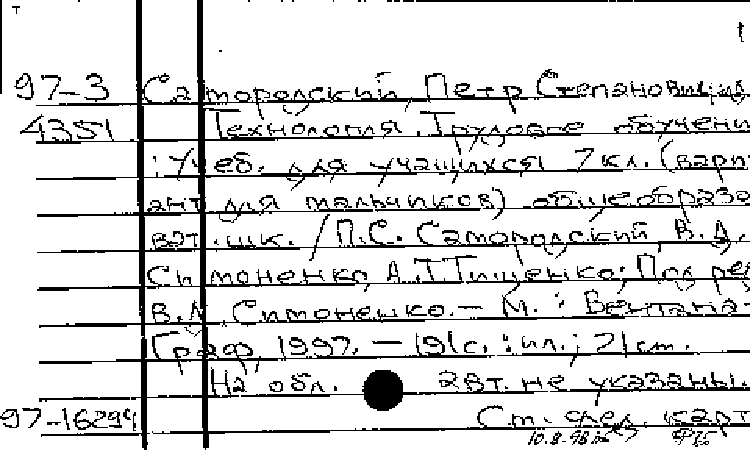 97-3 Самородский, Петр Степанович
4351 Технология. Трудовое обучени
: Учеб. для учащихся 7 кл. (вари
ант для мальчиков) общеобразо
ват. шк. / П.С. Самородский, В.Д.
Симоненко, А.Т. Тищенко; Под ред.
В.Д. Симоненко. - М. : Вентана-
Граф, 1997. - 191с. : ил.; 21 см.
На обл. авт. не указаны.
97-16294 См. след. карт
10.8.98